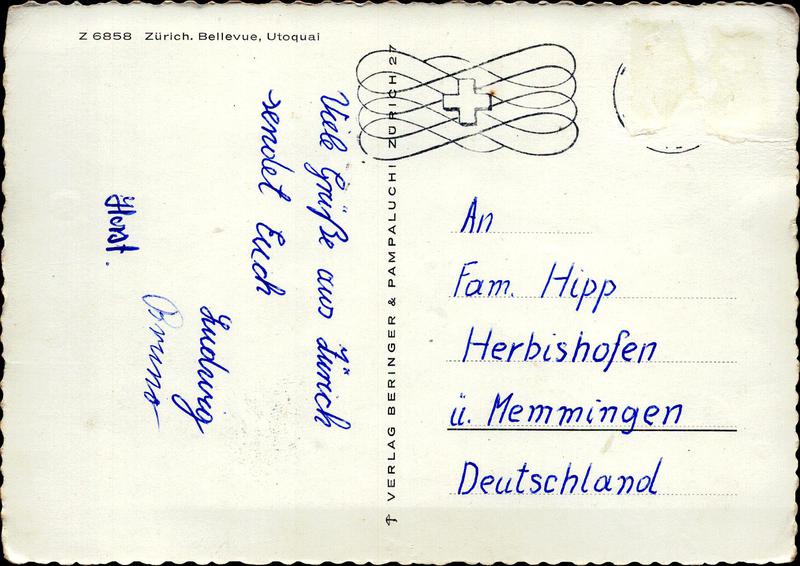 Z 6858 Zürich. Bellevue, Utoquai
Viele Grüße aus Zürich
sendet Euch
Ludwig
Bruno
Horst.
VERLAG BERINGER & PAMPALUCHI ZÜRICH 27
An
Fam. Hipp
Herbishofen
ü. Memmingen
Deutschland